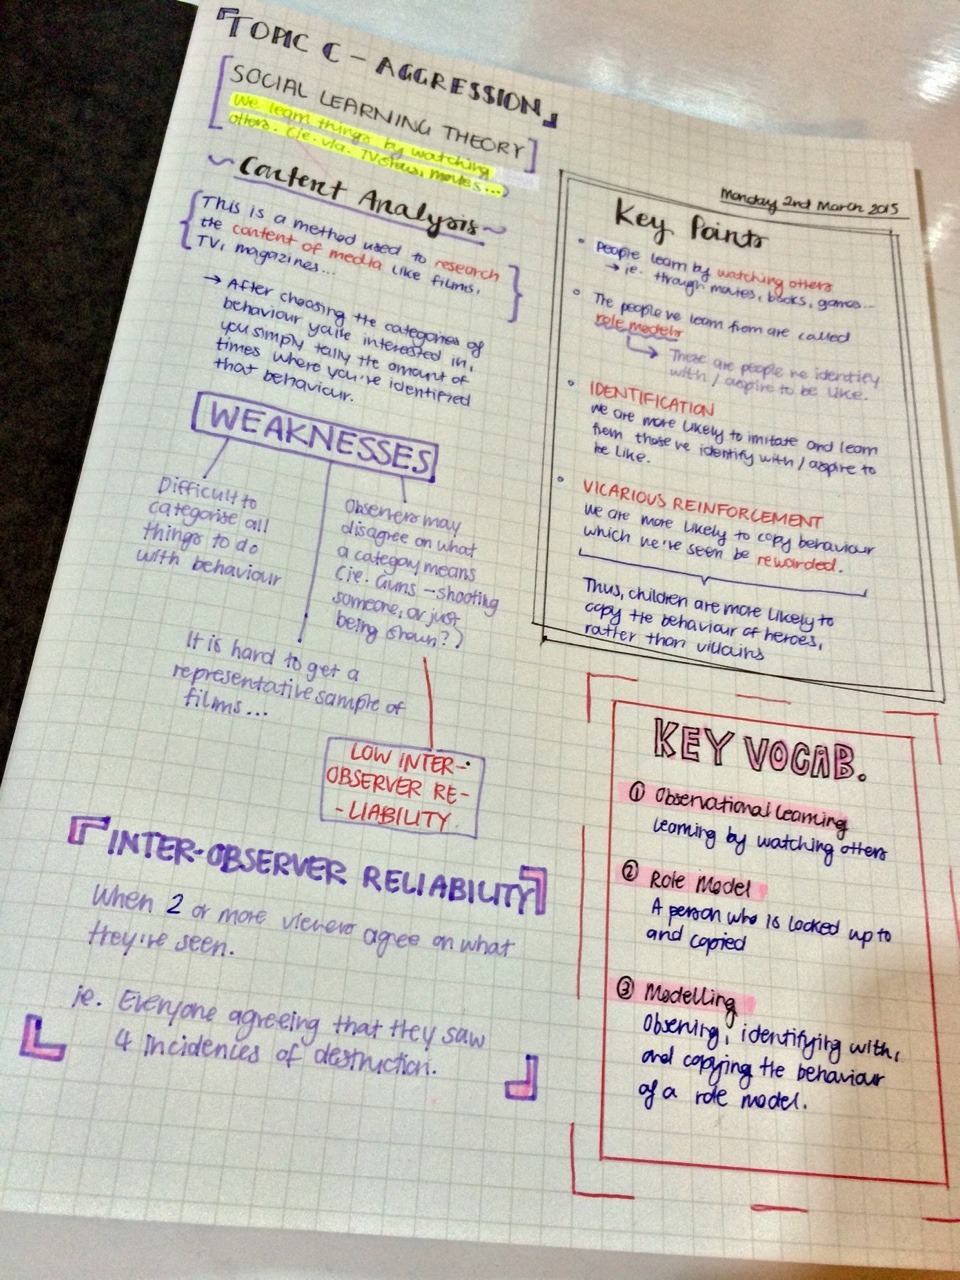 TOPIC C - AGGRESSION
SOCIAL LEARNING THEORY
We learn things by watching
others. (ie. via. TV shows, movies...)
Content Analysis
This is a method used to research
the content of media like films,
TV, magazines...
→ After choosing the categories of
behaviour you're interested in,
you simply tally the amount of
times where you've identified
that behaviour.
WEAKNESSES
Difficult to
categorise all
things to do
with behaviour
Observers may
disagree on what
a category means
(ie. Guns - shooting
someone, or just
being shown?)
It is hard to get a
representative sample of
films...
LOW INTER-
OBSERVER RE-
-LIABILITY
INTER-OBSERVER RELIABILITY
When 2 or more viewers agree on what
they're seen.
ie. Everyone agreeing that they saw
4 incidences of destruction.
Monday 2nd March 2015
Key Points
• People learn by watching others
→ ie. through movies, books, games...
• The people we learn from are called
role models
→ These are people we identify
with / aspire to be like.
• IDENTIFICATION
we are more likely to imitate and learn
from those we identify with / aspire to
be like.
• VICARIOUS REINFORCEMENT
we are more likely to copy behaviour
which we've seen be rewarded.
Thus, children are more likely to
copy the behaviour of heroes,
rather than villains
KEY VOCAB.
① Observational learning
learning by watching others
② Role Model
A person who is looked up to
and copied
③ Modelling
Observing, identifying with,
and copying the behaviour
of a role model.